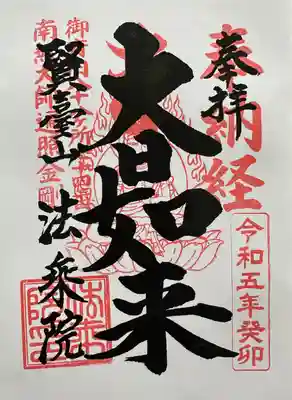 奉拝
納経
令和五年癸卯
大日如来
南無大師遍照金剛
賢臺山 法乗院